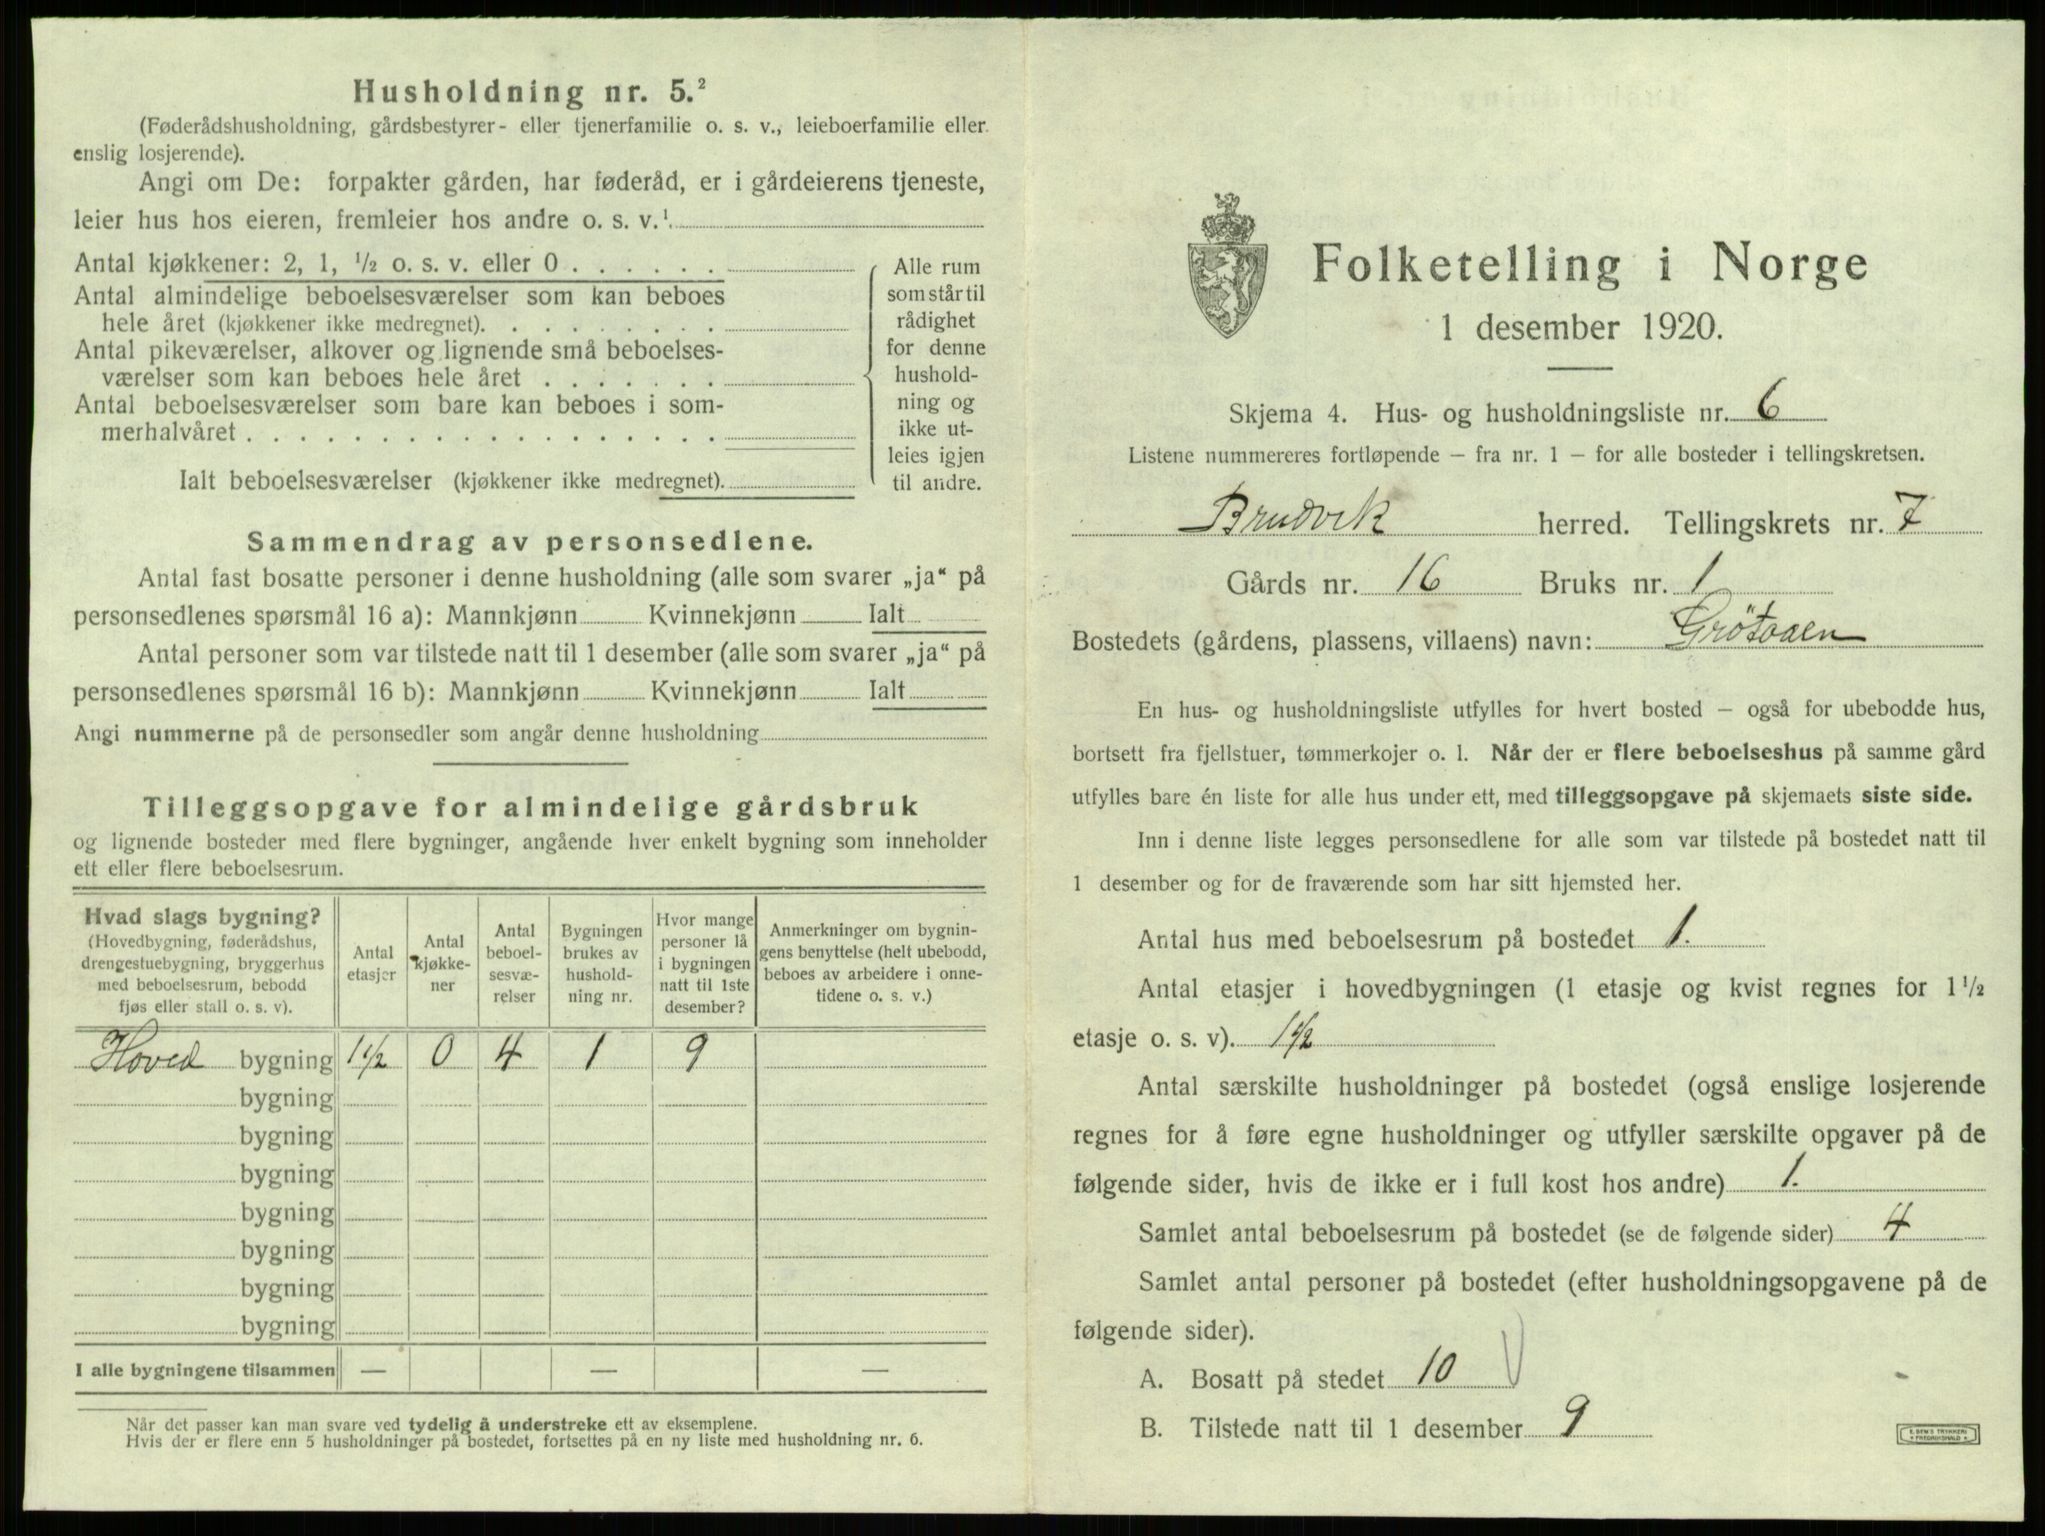 Husholdning nr. 5.²
(Føderådshusholdning, gårdsbestyrer- eller tjenerfamilie o. s. v., leieboerfamilie eller
enslig losjerende).
Angi om De: forpakter gården, har føderåd, er i gårdeierens tjeneste,
leier hus hos eieren, fremleier hos andre o. s. v.¹
Antal kjøkkener: 2, 1, ½ o. s. v. eller 0 . . . . . .
Antal almindelige beboelsesværelser som kan beboes
hele året (kjøkkener ikke medregnet). . . . . . . . .
Antal pikeværelser, alkover og lignende små beboelses-
værelser som kan beboes hele året . . . . . . .
Antal beboelsesværelser som bare kan beboes i som-
merhalvåret . . . . . . . . . . . . . . . . . .
Ialt beboelsesværelser (kjøkkener ikke medregnet).
Alle rum
som står til
rådighet
for denne
hushold-
ning og
ikke ut-
leies igjen
til andre.
Sammendrag av personsedlene.
Antal fast bosatte personer i denne husholdning (alle som svarer „ja“ på
personsedlenes spørsmål 16 a): Mannkjønn Kvinnekjønn Ialt
Antal personer som var tilstede natt til 1 desember (alle som svarer „ja“ på
personsedlenes spørsmål 16 b): Mannkjønn Kvinnekjønn Ialt
Angi nummerne på de personsedler som angår denne husholdning
Tilleggsopgave for almindelige gårdsbruk
og lignende bosteder med flere bygninger, angående hver enkelt bygning som inneholder
ett eller flere beboelsesrum.
Hvad slags bygning?
(Hovedbygning, føderådshus,
drengestuebygning, bryggerhus
med beboelsesrum, bebodd
fjøs eller stall o. s. v).
Antal
etasjer
Antal
kjøkke-
ner
Antal
beboel-
sesvæ-
relser
Bygningen
brukes av
hushold-
ning nr.
Hvor mange
personer lå
i bygningen
natt til 1ste
desember?
Anmerkninger om bygnin-
gens benyttelse (helt ubebodd,
beboes av arbeidere i onne-
tidene o. s. v.)
Hoved bygning 1½ 0 4 1 9
bygning
bygning
bygning
bygning
bygning
bygning
bygning
I alle bygningene tilsammen — — —
Når det passer kan man svare ved tydelig å understreke ett av eksemplene.
Hvis der er flere enn 5 husholdninger på bostedet, fortsettes på en ny liste med husholdning nr. 6.
Folketelling i Norge
1 desember 1920.
Skjema 4. Hus- og husholdningsliste nr. 6
Listene nummereres fortløpende — fra nr. 1 — for alle bosteder i tellingskretsen.
Bruvik herred. Tellingskrets nr. 7
Gårds nr. 16 Bruks nr. 1
Bostedets (gårdens, plassens, villaens) navn:
En hus- og husholdningsliste utfylles for hvert bosted — også for ubebodde hus,
bortsett fra fjellstuer, tømmerkojer o. l. Når der er flere beboelseshus på samme gård
utfylles bare én liste for alle hus under ett, med tilleggsopgave på skjemaets siste side.
Inn i denne liste legges personsedlene for alle som var tilstede på bostedet natt til
1 desember og for de fraværende som har sitt hjemsted her.
Antal hus med beboelsesrum på bostedet 1.
Antal etasjer i hovedbygningen (1 etasje og kvist regnes for 1½
etasje o. s. v). 1½
Antal særskilte husholdninger på bostedet (også enslige losjerende
regnes for å føre egne husholdninger og utfyller særskilte opgaver på de
følgende sider, hvis de ikke er i full kost hos andre) 1.
Samlet antal beboelsesrum på bostedet (se de følgende sider) 4
Samlet antal personer på bostedet (efter husholdningsopgavene på de
følgende sider).
A. Bosatt på stedet 10
B. Tilstede natt til 1 desember 9
E. SEM'S TRYKKERI
FREDRIKSHALD